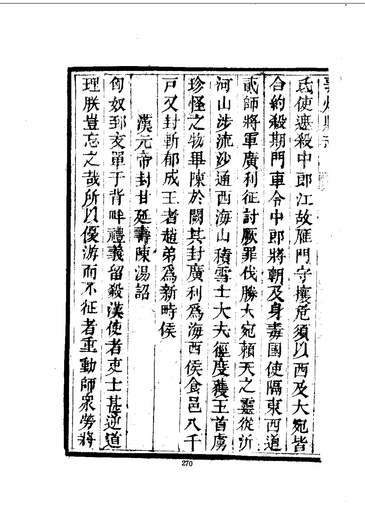 氏使遮殺中郎江故雁門守攘危須以西及大宛皆
合約殺期門車令中郎將朝及身毒國使隔東西道
貳師將軍廣利征討厥罪伐勝大宛賴天之靈從沂
河山涉流沙通西海山積雪士大夫徑度獲王首虜
珍怪之物畢陳於闕其封廣利為海西侯食邑八千
戸又封斬郁成王者趙弟為新時侯
漢元帝封甘延壽陳湯詔
匈奴郅支單于背畔禮義留殺漢使者吏士甚逆道
理朕豈忘之哉所以優游而不征者重動師眾勞將
270